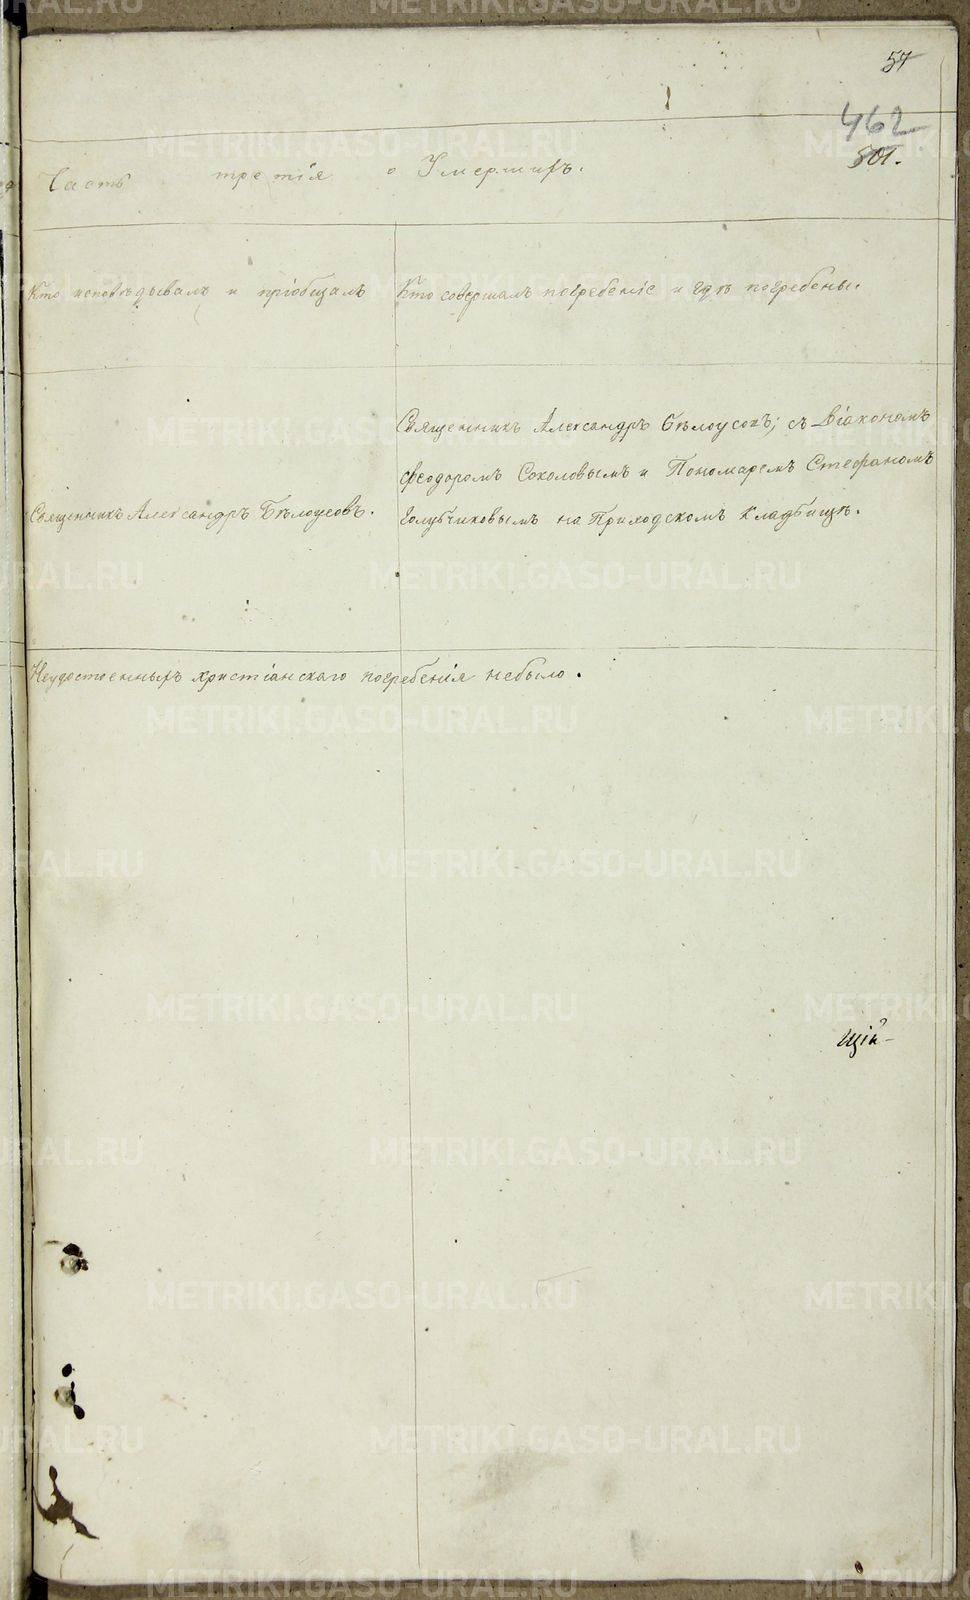 57
462
501.
Часть третія о Умершихъ.
Кто исповѣдывалъ и пріобщалъ
Кто совершалъ погребеніе и гдѣ погребены.
Священникъ Александръ Бѣлоусовъ.
Священникъ Александръ Бѣлоусовъ; съ Діакономъ
Феодоромъ Соколовымъ и Пономаремъ Стефаномъ
Голубчиковымъ на Приходскомъ кладбищѣ.
Неудостоенныхъ христіанскаго погребенія небыло.
щій
METRIKI.GASO-URAL.RU